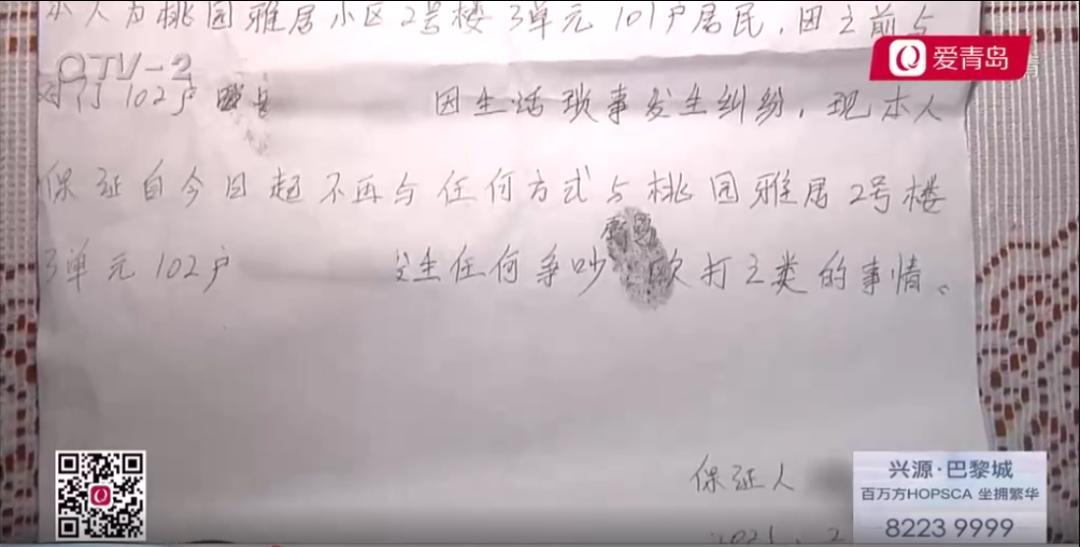 本人为桃园雅居小区2号楼3单元101户居民,因之前与
爱青岛
QTV-2
对门102户 因生活琐事发生纠纷,现本人
保证自今日起不再与任何方式与桃园雅居2号楼
3单元102户 发生任何争吵 殴打之类的事情。
保证人
兴源·巴黎城
百万方HOPSCA 坐拥繁华
8223 9999
2021.2